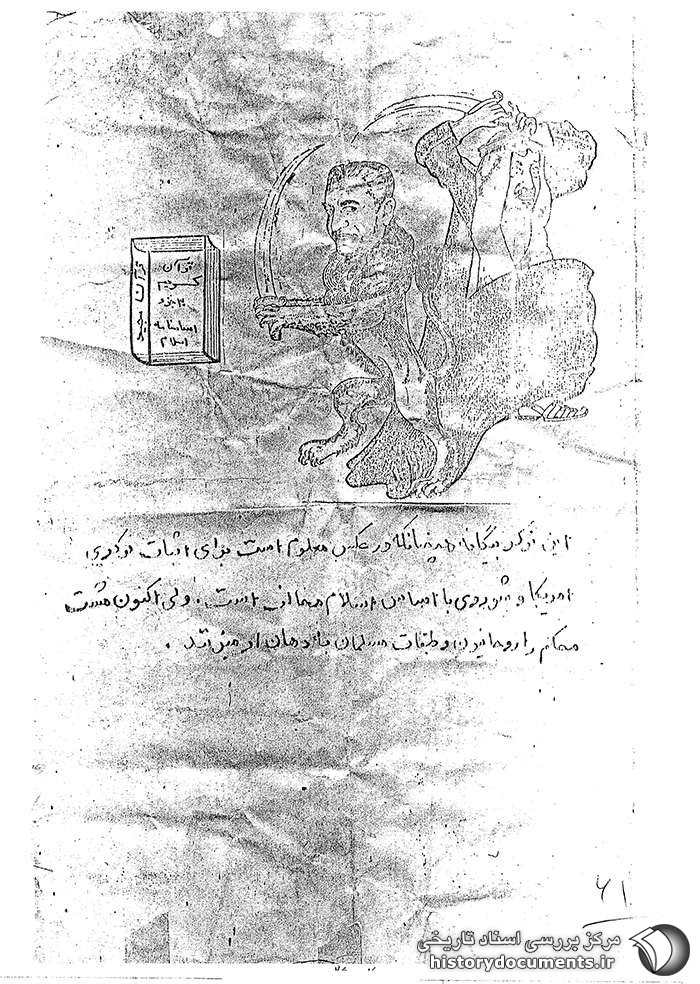 قرآن مجید
قرآن
کریم
۳۰ جزو
اساسنامه
اسلام
این نوکر بیگانه همچنانکه در عکس معلوم است برای اثبات نوکری
امریکا و شوروی با اساس اسلام مخالف است. ولی اکنون مشت
محکم را روحانیون و طبقات مسلمان بدهان او میزنند.
۶۱
مرکز بررسی اسناد تاریخی
historydocuments.ir